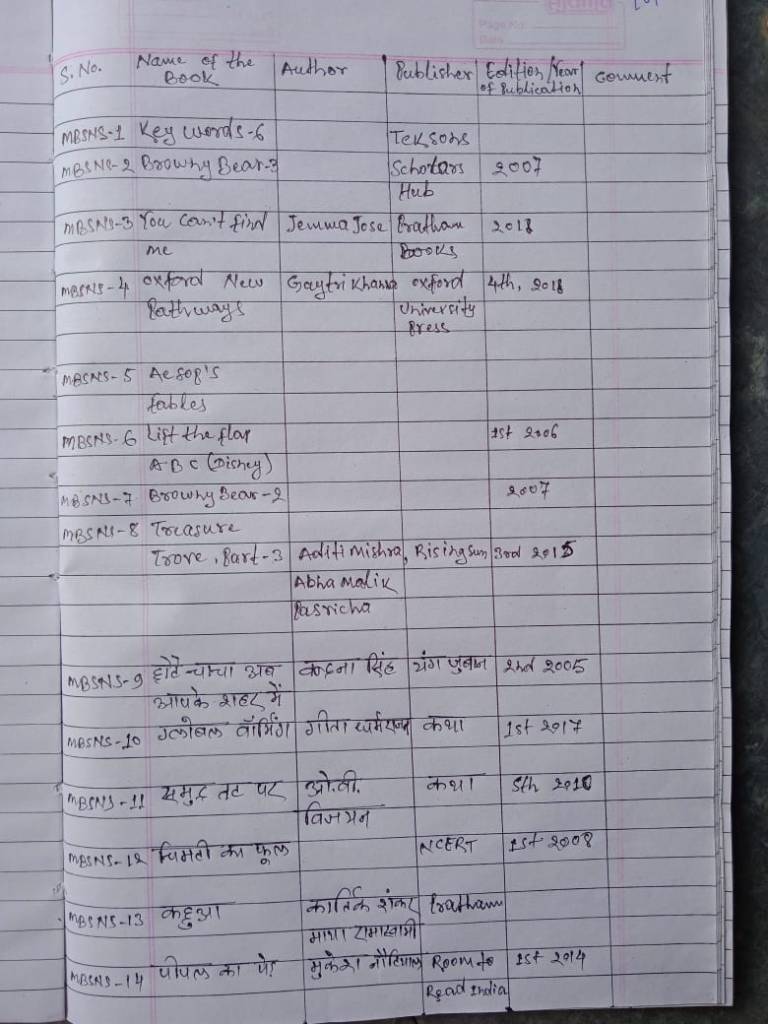 Page No.
Date
S.No. Name of the Author Publisher Edition/Year Comment
Book of Publication
MBSNS-1 Key words-6 Teksons
MBSNS-2 Browny Bear-3 Scholars 2007
Hub
MBSNS-3 You can't find Jemma Jose Pratham 2018
me Books
MBSNS-4 Oxford New Gaytri Khanna Oxford 4th, 2018
Pathways University
Press
MBSNS-5 Aesop's
fables
MBSNS-6 Lift the flap 1st 2006
A-B C (Disney)
MBSNS-7 Browny Bear-2 2007
MBSNS-8 Treasure
Trove, Part-3 Aditi Mishra, Rising Sun 3rd 2015
Abha Malik
Pasricha
MBSNS-9 छोटे चाचा अब सिंह यंग जुबान 2nd 2005
आपके शहर में
MBSNS-10 ग्लोबल वॉर्मिंग गीता धर्मराजन कथा 1st 2017
MBSNS-11 समुद्र तट पर ओ.वी. कथा 5th 2010
विजयन
MBSNS-12 चिमटी का फूल NCERT 1st 2008
MBSNS-13 कछुआ कार्तिक शंकर Pratham
माधा रामास्वामी
MBSNS-14 पीपल का पेड़ मुकेश नौटियाल Room to 1st 2014
Read India